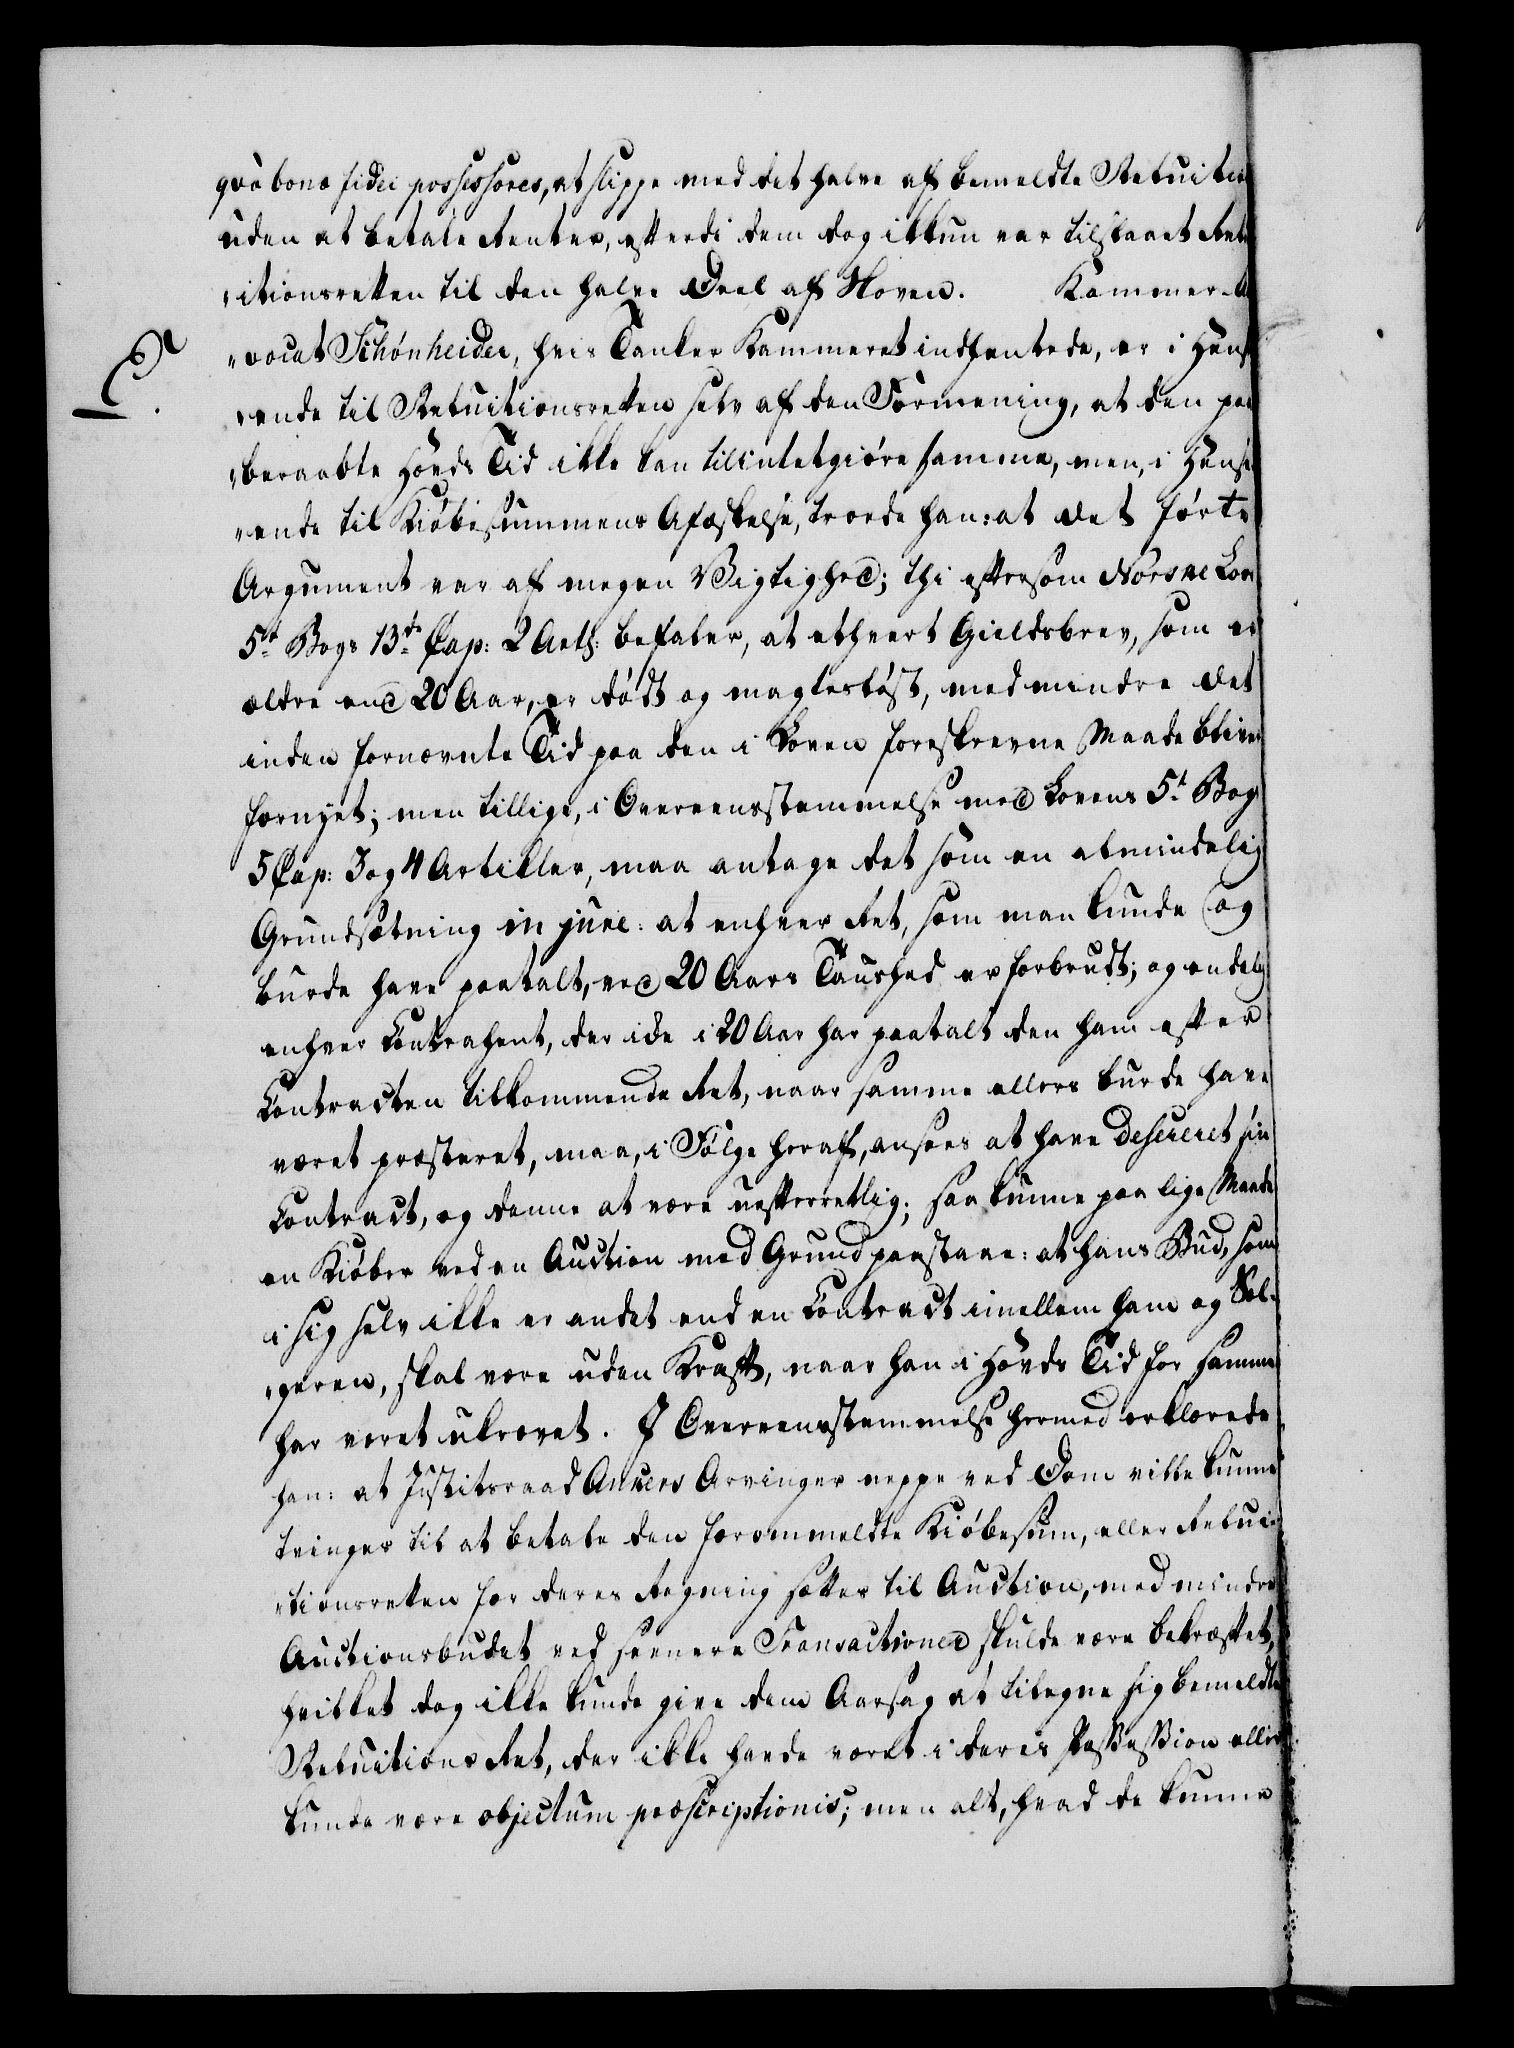 qvà bonæ fidei possessores, at slippe med det halve af bemeldte Reluition
uden at betale Renter, efterdi dem dog ikkun var tilstaaet Relu
"itionsretten til den halve Deel af Skoven. Kammer-Ad
"vocat Schönheider, hvis Tanker Kammeret indhentede, er i Hens
"ende til Reluitionsretten selv af den Formening, at den paa
"beraabte Hævds Tid ikke kan tilintetgiøre samme, men, i Hense
"ende til Kiøbesummens Afæskelse, troede han: at det førte
Argument var af megen Vigtighed; thi eftersom Norske Lovs
5te Bogs 13de Cap: 2 Art: befaler, at ethvert Gieldsbrev, som er
ældre end 20 Aar, er dødt og magtesløst, med mindre det
inden fornævnte Tid paa den i Loven foreskrevne Maade bliver
fornyet; men tillige, i Overeensstemmelse med Lovens 5te Bogs
5 Cap: 3 og 4 Artikler, maa antage det som en almindelig
Grundsætning in jure: at enhver Ret, som man kunde og
burde have paatalt, ved 20 Aars Taushed er forbrudt; og endelig
enhver Contrahent, der ide i 20 Aar har paatalt den ham efter
Contracten tilkommende Ret, naar samme ellers burde have
været præsteret, maa, i Følge heraf, ansees at have desereret sin
Contract, og denne at være uefterrettlig; saa kunne paa lige Maade
en Kiøber ved en Auction med Grund paastaae: at hans Bud, som
i sig selv ikke er andet end en Contract imellem ham og Sæl-
"geren, skal være uden Kraft, naar han i Hævds Tid for samme
har været ukrævet. I Overeensstemmelse hermed erklærede
han: at Justitsraad Ankers Arvinger neppe ved Dom ville kunne
tvinges til at betale den forommeldte Kiøbesum, eller Relui-
"tionsretten for deres Regning sættes til Auction, med mindre
Auctionsbudet ved seenere Transactioner skulde være bekræftet,
hvilket dog ikke kunde give dem Aarsag at tilegne sig bemeldte
Reluitions Ret, der ikke havde været i deres Possession eller
kunde være objectum præscriptionis; men alt, hvad de kunne